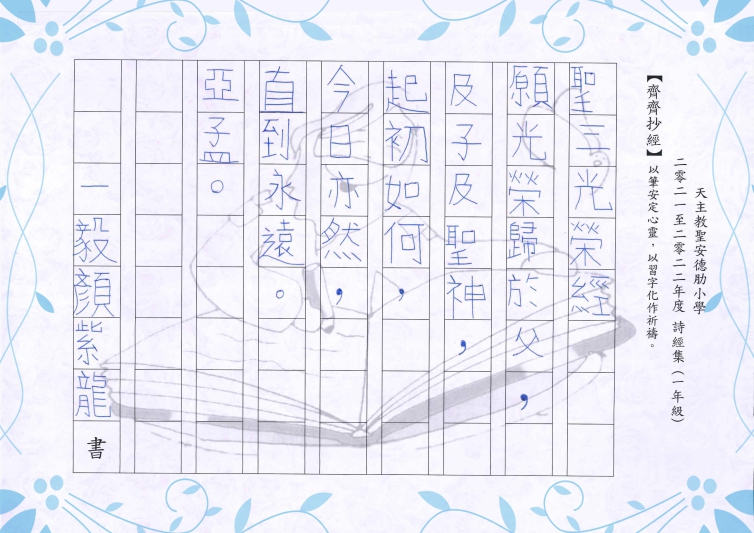 天主教聖安德肋小學
二零二一至二零二二年度 詩經集（一年級）
【齊齊抄經】以筆安定心靈，以習字化作祈禱。
聖三光榮經
願光榮歸於父，
及子及聖神，
起初如何，
今日亦然，
直到永遠。
亞孟。
一毅顏紫龍書